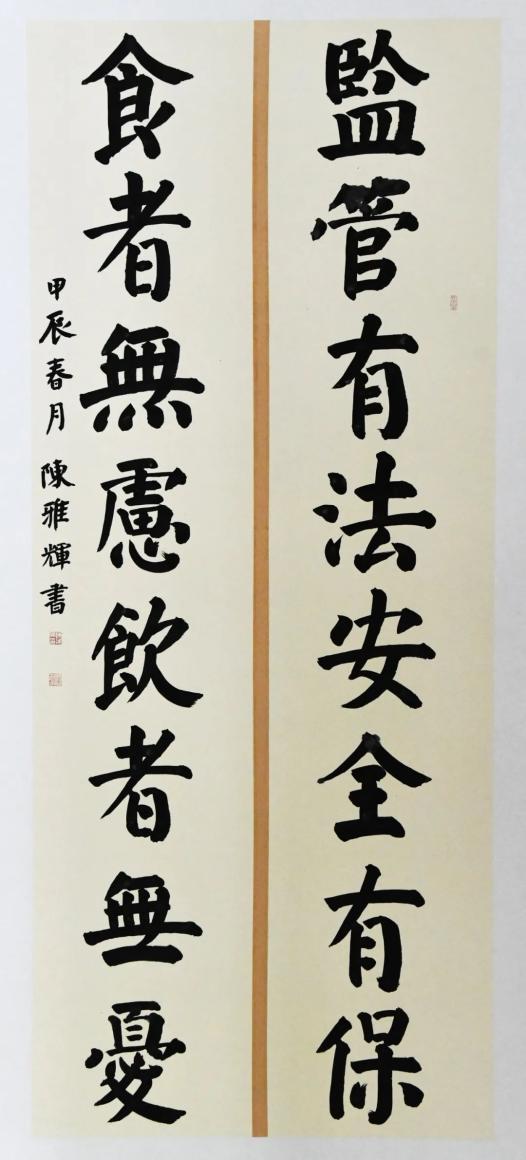 監管有法安全有保
食者無慮飲者無憂
甲辰春月 陳雅輝書